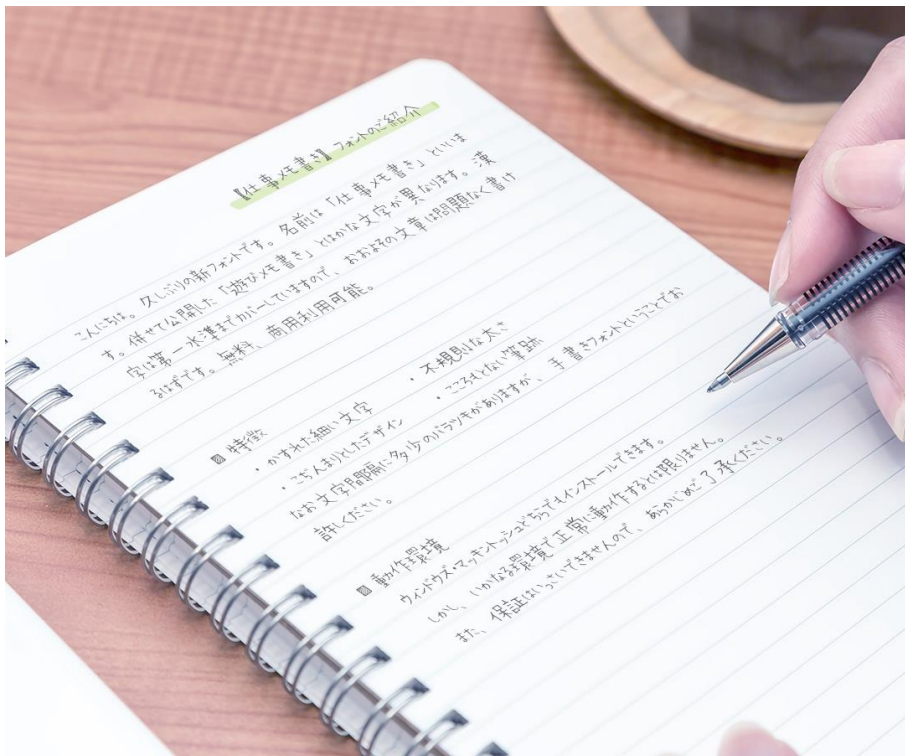 【仕事メモ書き】フォントのご紹介
こんにちは。久しぶりの新フォントです。名前は「仕事メモ書き」といいま
す。併せて公開した「遊びメモ書き」とはかな文字が異なります。漢
字は第一水準までカバーしていますので、おおよその文章は問題なく書け
るはずです。無料、商用利用可能。
▨特徴
・かすれた細い文字 ・不規則な太さ
・こぢんまりとしたデザイン ・こころもとない筆跡
なお文字間隔に多少のバラツキがありますが、手書きフォントということでお
許しください。
▨動作環境
ウィンドウズ・マッキントッシュどちらでもインストールできます。
しかし、いかなる環境で正常に動作するとは限りません。
また、保証はいっさいできませんので、あらかじめご了承ください。